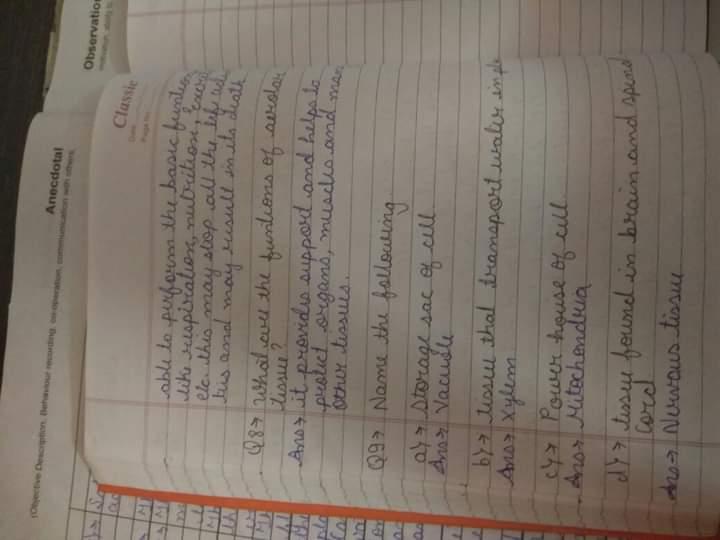 Observation
Anecdotal
(Objective Description, Behaviour recording, co-operation, communication with others
Classic
Date
Page No.
able to perform the basic funtion
like respiration, nutrition,
etc. this may stop all the life
his and may result in its death
Q8→ What are the funtions of aerolar
tissue?
Ans→ it provides support and helps to
protect organs, muscles and
other tissues.
Q9→ Name the following
a)→ Storage sac of cell
Ans→ Vacuole
b)→ tissue that transport water in
Ans→ Xylem
c)→ Power house of cell
Ans→ Mitochondria
d)→ tissue found in brain and
Cord
Ans→ Nervous tissue